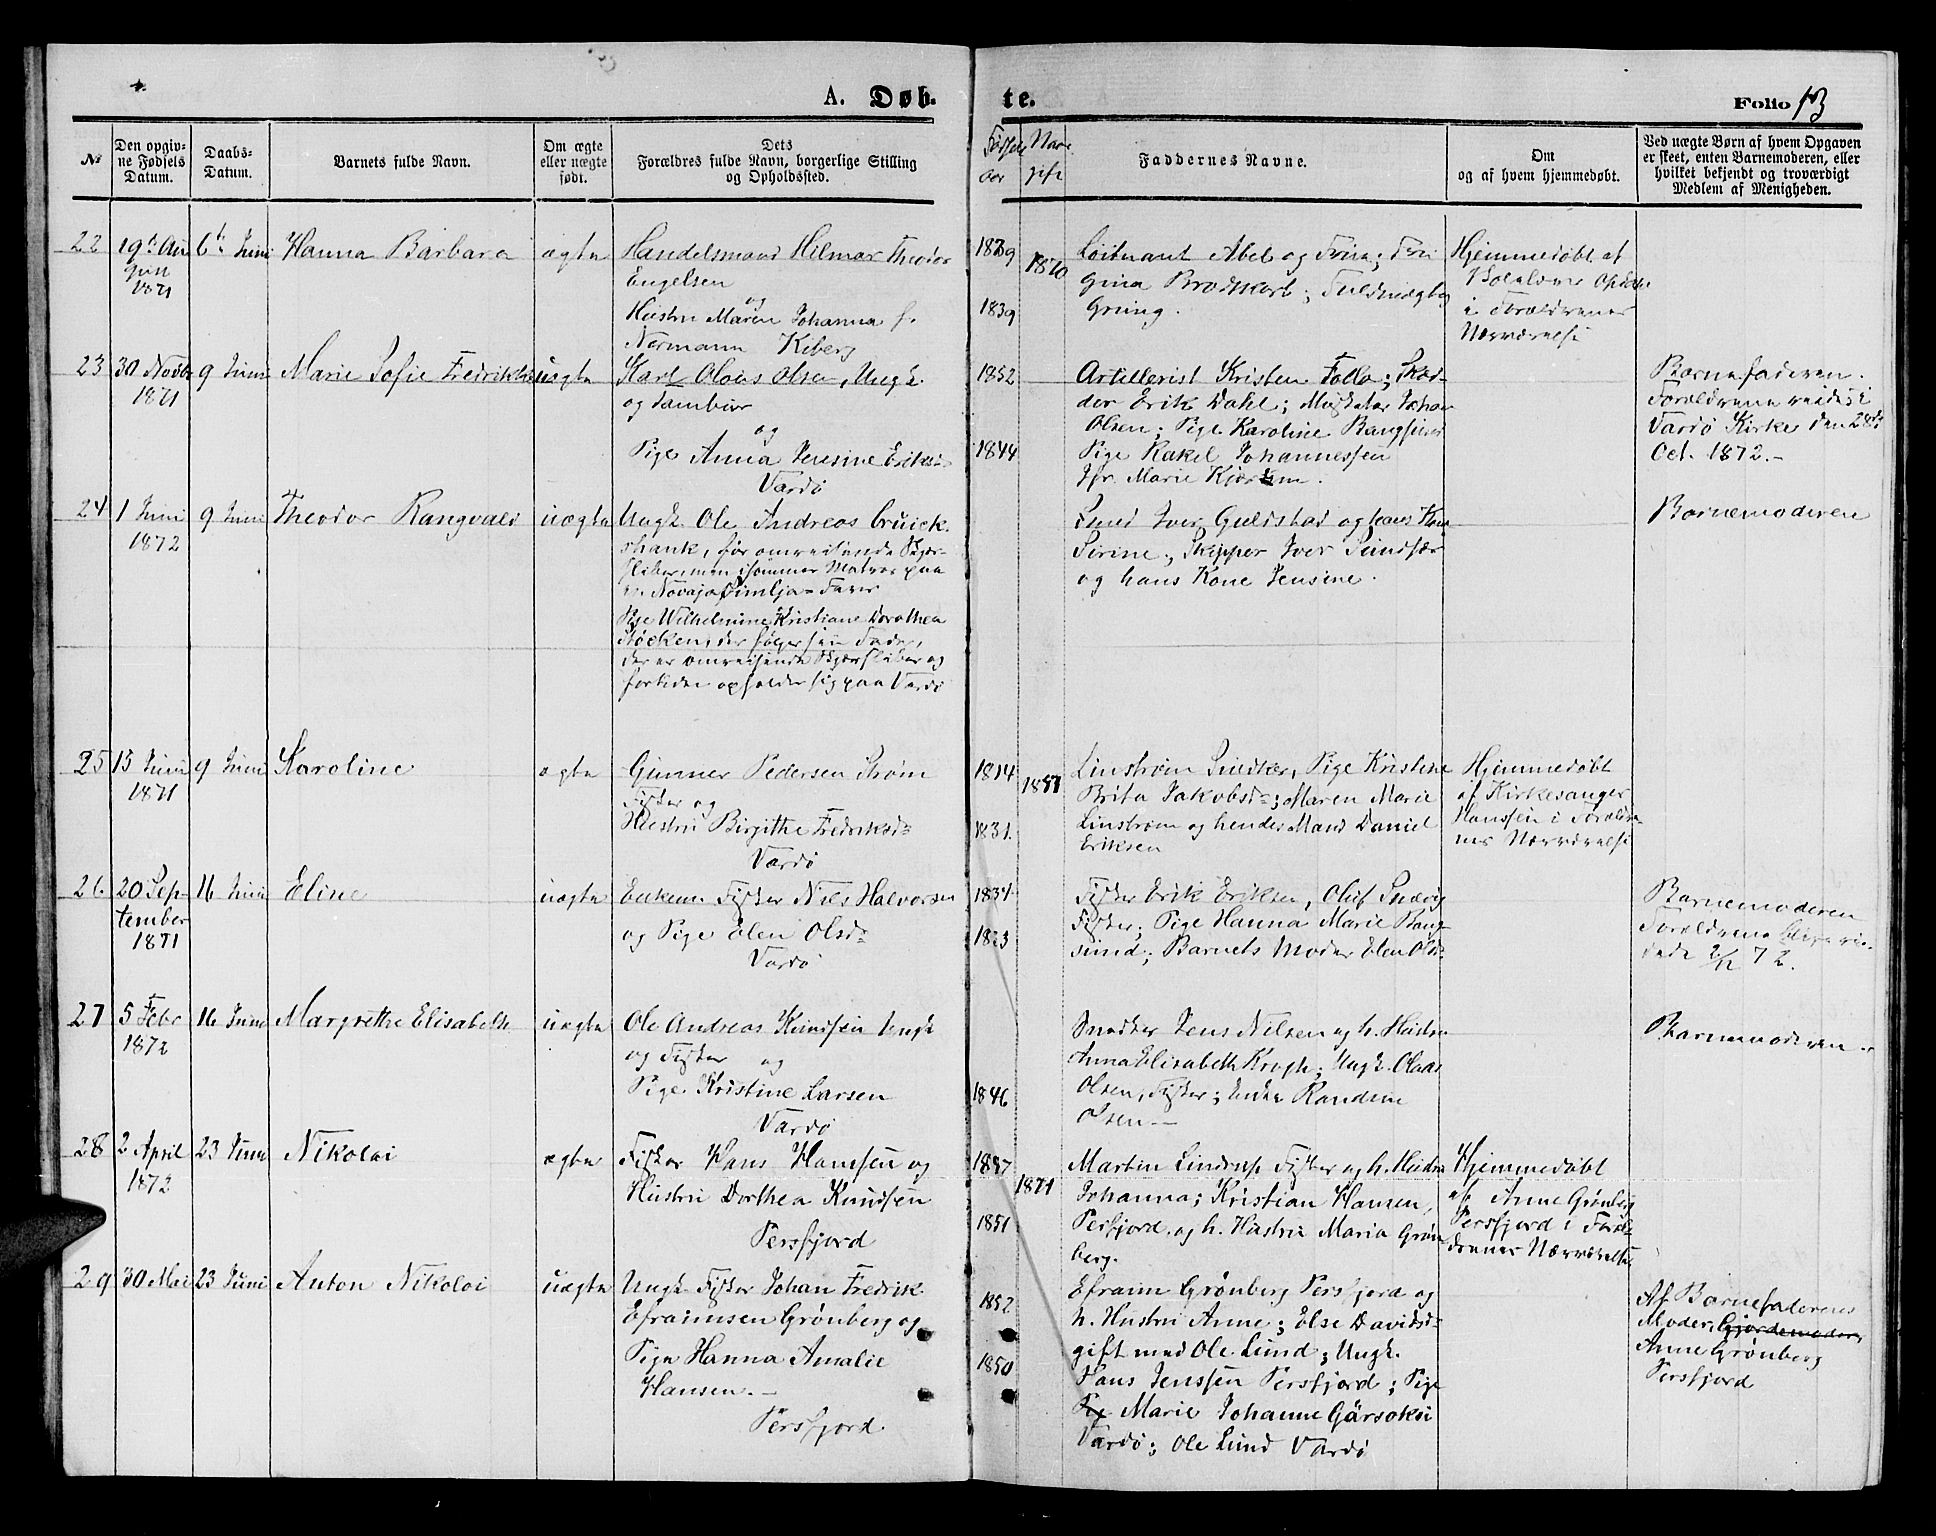 A. Døb-
te.
Folio 13
№
Den opgiv-
ne Fødsels
Datum.
Daabs-
Datum.
Barnets fulde Navn.
Om ægte
eller uægte
født.
Dets
Forældres fulde Navn, borgerlige Stilling
og Opholdssted.
Fødsels
aar
Faddernes Navne.
Om
og af hvem hjemmedøbt.
Ved uægte Børn af hvem Opgaven
er skeet, enten Barnemoderen, eller
hvilket bekjendt og troværdigt
Medlem af Menigheden.
22
1871
6te Juni
Hanna Barbara
ægte
Handelsmand Hilmar Theodor
Engelsen
og
Hustru Maren Johanna f.
Normann Kiberg
1839
1839
1870
Løitnant Abel og Frue; Frü
Gina Brodtkorb; Fuldmægtig
Grüng.
Hjemmedøbt af
i Forældrenes
Nærværelse
23
30 Novbr
1871
9 Juni
Marie Sofie Fredrikke
uægte
Karl Olaus Olsen, Ungk.
og Tambur
og
Pige Anna Jensine Eriks-
Vardö
1852
1844
Artillerist Kristen Follo; Skræd-
der Erik Dahl; Musketer Johan
Olsen; Pige Karoline Bangsund
Pige Rakel Johannessen
Jfr. Marie Kjærem.
Barnefaderen.
Forældrene viede i
Vardö Kirke den 28de
Oct. 1872.-
24
1 Juni
1872
9 Juni
Theodor Rangvald
uægte
Ungk. Ole Andreas Cruick-
shank, før omreisende Skjær-
sliber, men isommer Matros paa
en Novaja Simlja-Farer
Pige Wilhelmine Kristiane Dorothea
Støcken, der følger sin Fader,
der er omreisende Skjærsliber og
fortiden opholder sig paa Vardö
Smed Iver Guldstad og hans Kone
Serine; Skipper Iver Sundfær
og hans Kone Jensine.
Barnemoderen
25
13 Juni
1871
9 Juni
Karoline
ægte
Gunner Pedersen Strøm
Fisker og
Hustru Birgithe Fredriksd=
Vardö
1814
1831.
1857
Linstrøm Snedker, Pige Kristine
Brita Jakobsd=; Maren Marie
Linstrøm og hendes Mand Daniel
Eriksen
Hjemmedøbt
af Kirkesanger
Hanssen i Foreldre-
nes Nærværelse
26
20 Sep-
tember
1871
16 Juni
Eline
uægte
Enkem. Fisker Niels Halvorsen
og Pige Elen Olsd=
Vardö
1834
Fisker Erik Eriksen, Oluf Ludvig
Fisker; Pige Hanna Marie Bang-
sund; Barnets Moder Elen Olsd=
Barnemoderen
Forældrene bleve vi-
ede 2/12 72.
27
5 Febr
1872
16 Juni
Margrethe Elisabeth
uægte
Ole Andreas Knudsen Ungk.
og Fisker og
Pige Kristine Larsen
Vardö
1846
Snedker Jens Nilsen og h. Hustru
Anna Elisabeth Krogh; Ungk. Olaus
Olsen, Fisker; Enke Randine
Olsen.—
Barnemoderen.
28
2 April
1872
23 Juni
Nikolai
ægte
Fisker Hans Hanssen og
Hustru Dorthea Knudsen
Persfjord
1847
1851
1871
Martin Lindrup Fisker og h. Hustru
Johanna; Kristian Hansen,
Persfjord, og h. Hustru Maria Grøn-
berg.
Hjemmedøbt
af Anne Grønberg
Persfjord i Foræl-
drenes Nærværelse
29
30 Mai
23 Juni
Anton Nikolai
uægte
Ungk. Fisker Johan Fredrik
Efraimsen Grønberg og
Pige Hanna Amalie
Hansen.—
Persfjord
1852
1850
Efraim Grønberg Persfjord og
h. Hustru Anne; Else Davidsd=
gift med Ole Lund; Ungk.
Hans Jenssen Persfjord; Pige
Marie Johanne Gårsoksi
Vardö; Ole Lund Vardö
Af Barnefaderens
Moder, Gjordemoder,
Anne Grønberg
Persfjord